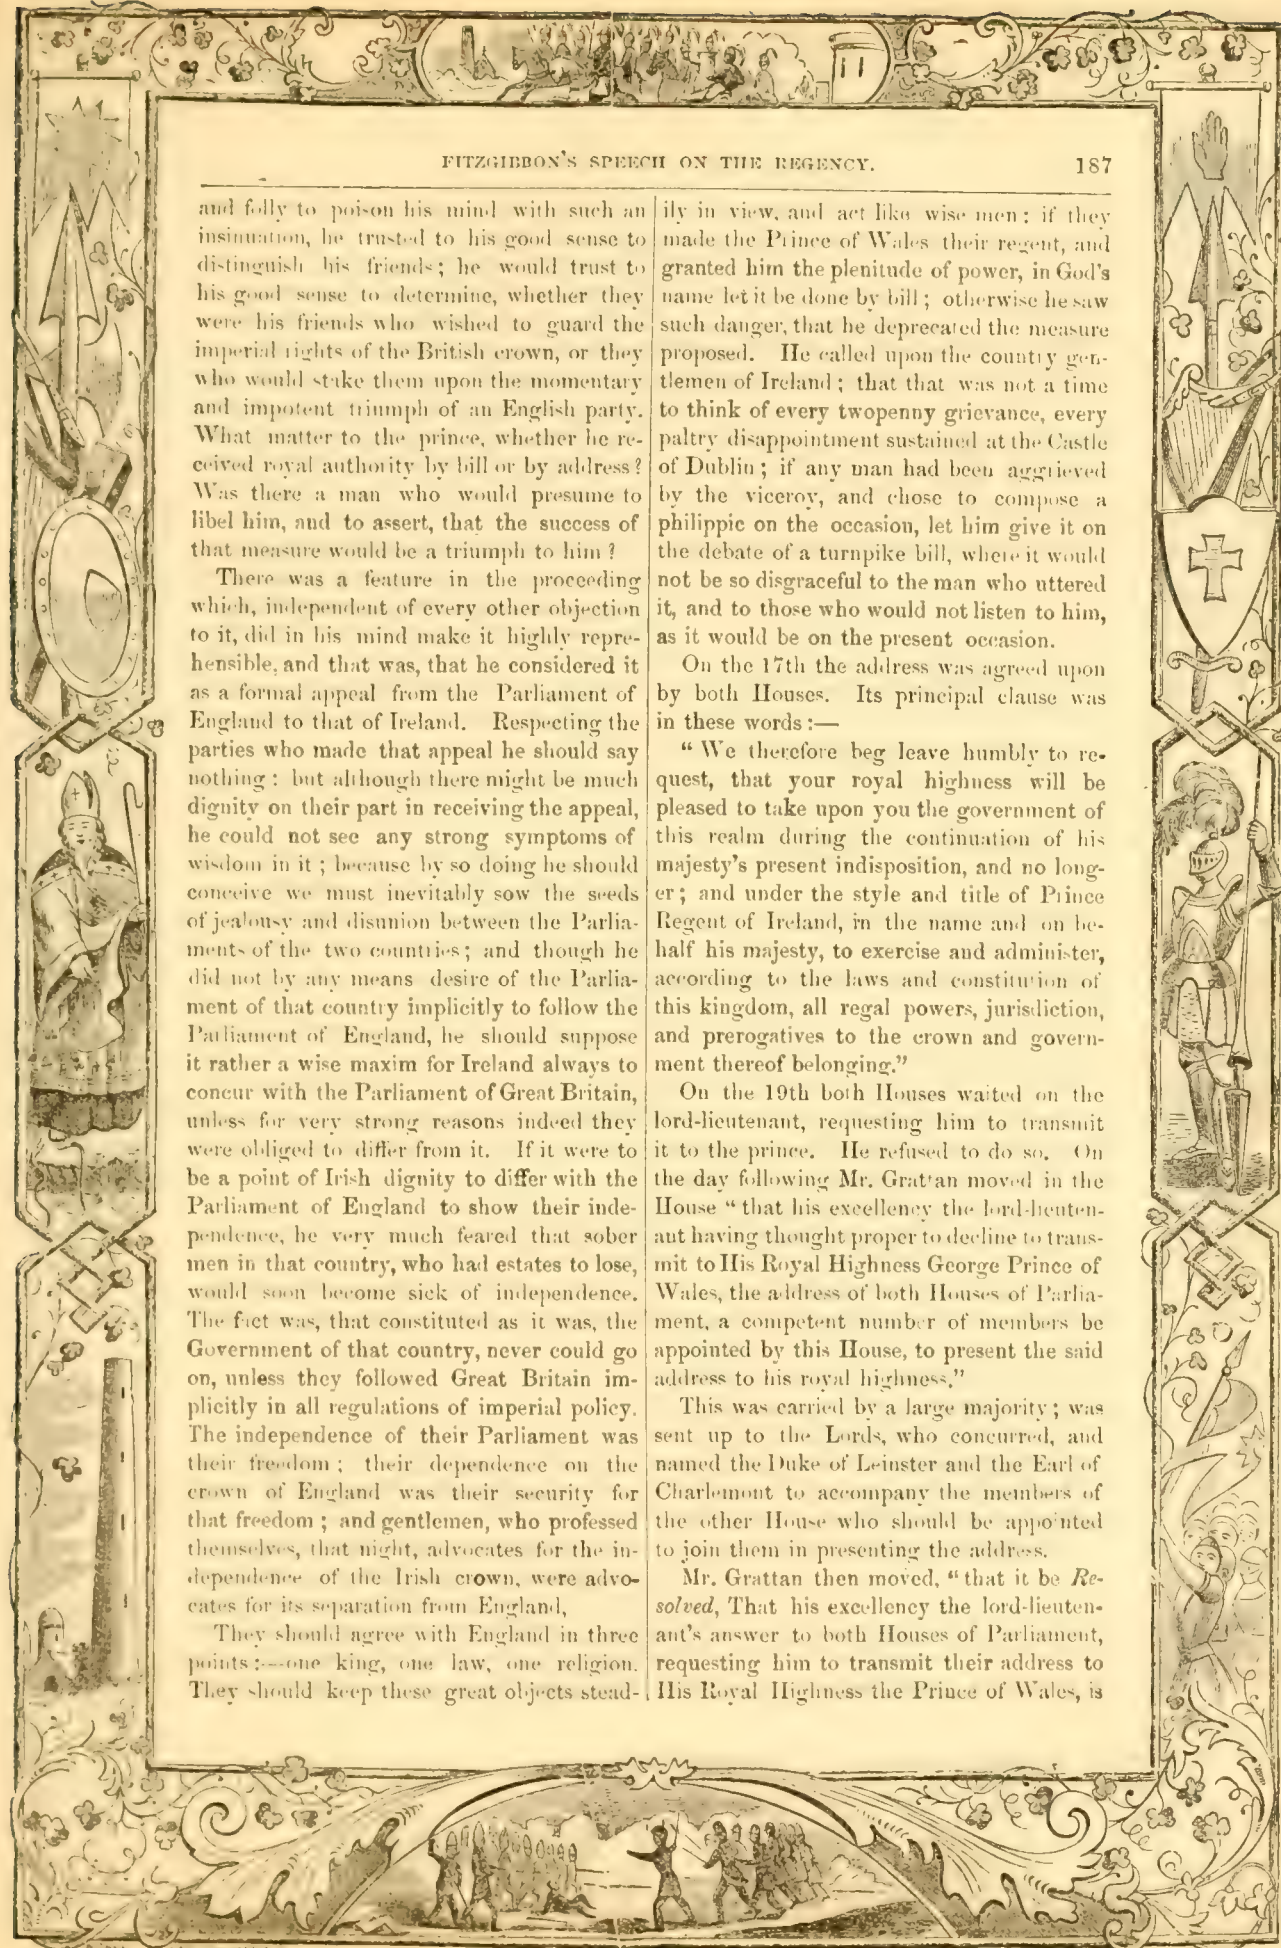 FITZGIBBON'S SPEECH ON THE REGENCY. 187
and folly to poison his mind with such an
insinuation, he trusted to his good sense to
distinguish his friends; he would trust to
his good sense to determine, whether they
were his friends who wished to guard the
imperial rights of the British crown, or they
who would stake them upon the momentary
and impotent triumph of an English party.
What matter to the prince, whether he re-
ceived royal authority by bill or by address?
Was there a man who would presume to
libel him, and to assert, that the success of
that measure would be a triumph to him?
There was a feature in the proceeding
which, independent of every other objection
to it, did in his mind make it highly repre-
hensible, and that was, that he considered it
as a formal appeal from the Parliament of
England to that of Ireland. Respecting the
parties who made that appeal he should say
nothing: but although there might be much
dignity on their part in receiving the appeal,
he could not see any strong symptoms of
wisdom in it; because by so doing he should
conceive we must inevitably sow the seeds
of jealousy and disunion between the Parlia-
ments of the two countries; and though he
did not by any means desire of the Parlia-
ment of that country implicitly to follow the
Parliament of England, he should suppose
it rather a wise maxim for Ireland always to
concur with the Parliament of Great Britain,
unless for very strong reasons indeed they
were obliged to differ from it. If it were to
be a point of Irish dignity to differ with the
Parliament of England to show their inde-
pendence, he very much feared that sober
men in that country, who had estates to lose,
would soon become sick of independence.
The fact was, that constituted as it was, the
Government of that country, never could go
on, unless they followed Great Britain im-
plicitly in all regulations of imperial policy.
The independence of their Parliament was
their freedom; their dependence on the
crown of England was their security for
that freedom; and gentlemen, who professed
themselves, that night, advocates for the in-
dependence of the Irish crown, were advo-
cates for its separation from England,
They should agree with England in three
points:—one king, one law, one religion.
They should keep these great objects stead-
ily in view, and act like wise men; if they
made the Prince of Wales their regent, and
granted him the plenitude of power, in God's
name let it be done by bill; otherwise he saw
such danger, that he deprecated the measure
proposed. He called upon the country gen-
tlemen of Ireland; that that was not a time
to think of every twopenny grievance, every
paltry disappointment sustained at the Castle
of Dublin; if any man had been aggrieved
by the viceroy, and chose to compose a
philippic on the occasion, let him give it on
the debate of a turnpike bill, where it would
not be so disgraceful to the man who uttered
it, and to those who would not listen to him,
as it would be on the present occasion.
On the 17th the address was agreed upon
by both Houses. Its principal clause was
in these words:—
“We therefore beg leave humbly to re-
quest, that your royal highness will be
pleased to take upon you the government of
this realm during the continuation of his
majesty's present indisposition, and no long-
er; and under the style and title of Prince
Regent of Ireland, in the name and on be-
half his majesty, to exercise and administer,
according to the laws and constitution of
this kingdom, all regal powers, jurisdiction,
and prerogatives to the crown and govern-
ment thereof belonging.”
On the 19th both Houses waited on the
lord-lieutenant, requesting him to transmit
it to the prince. He refused to do so. On
the day following Mr. Grattan moved in the
House “that his excellency the lord-lieuten-
ant having thought proper to decline to trans-
mit to His Royal Highness George Prince of
Wales, the address of both Houses of Parlia-
ment, a competent number of members be
appointed by this House, to present the said
address to his royal highness.”
This was carried by a large majority; was
sent up to the Lords, who concurred, and
named the Duke of Leinster and the Earl of
Charlemont to accompany the members of
the other House who should be appointed
to join them in presenting the address.
Mr. Grattan then moved, “that it be Re-
solved, That his excellency the lord-lieuten-
ant's answer to both Houses of Parliament,
requesting him to transmit their address to
His Royal Highness the Prince of Wales, is